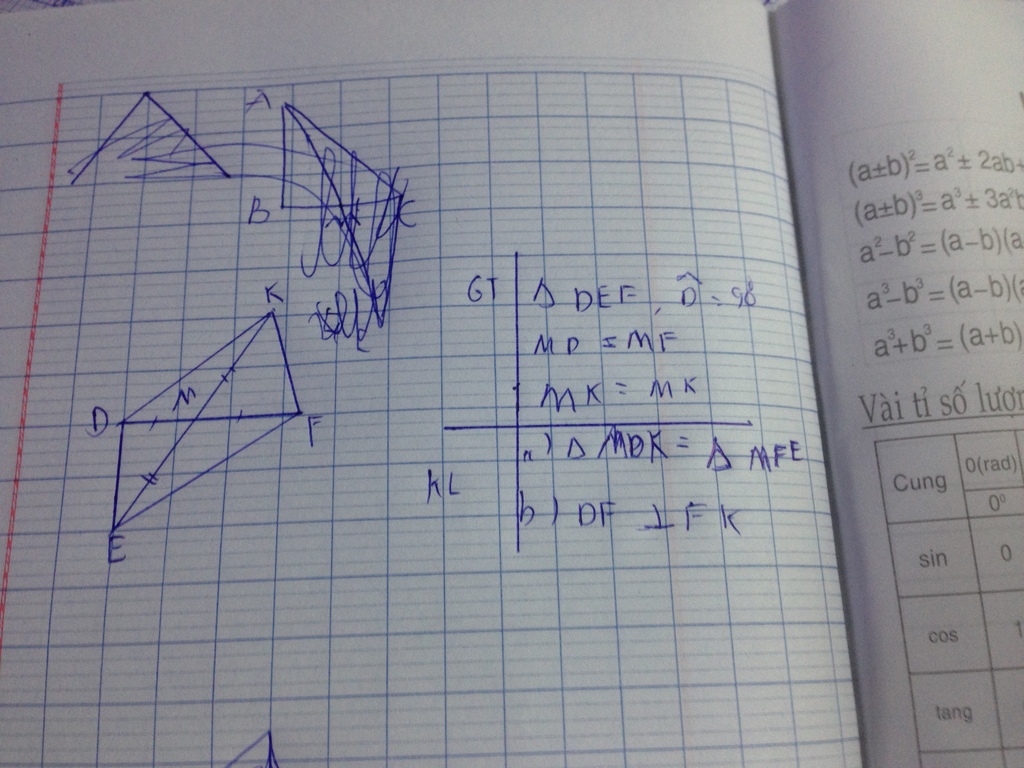 A
B
C
K
D
M
F
E
GT
Δ DEF, D̂ = 90°
MD = MF
MK = MK
KL
a) Δ MDK = Δ MFE
b) DF ⊥ FK
(a±b)²=a² ± 2ab+
(a±b)³=a³ ± 3a²b
a²−b²=(a−b)(a
a³−b³=(a−b)(a
a³+b³=(a+b)
Vài tỉ số lượn
Cung
0(rad)
0⁰
sin
0
cos
1
tang